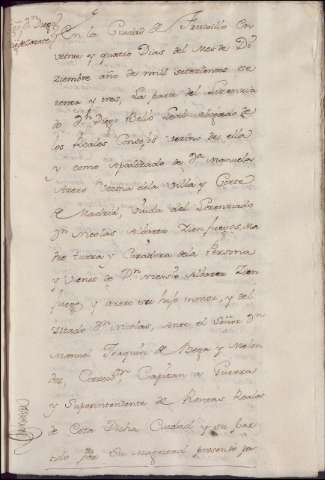 En la Ciudad de Truxillo en
veinte y quatro Dias del Mes de Di
ziembre año de mil setecientos se
tenta y tres, La parte del Lizencia
do Dn Diego Bello Abogado de
los Reales Consejos vezino de ella
y como Apoderado de Dª Manuela
Azero vezina dela Villa y Corte
de Madrid, Viuda del Lizenziado
Dn Nicolas Albarez Zienfuegos, Ma
dre tutora y Curadora dela Persona
y Vienes de Dn Albarez Zien
fuegos y Azero su hijo menor, y del
zitado Dn Nicolas, Ante el Señor Dn
Manuel Joaquin de y Melen
dez, Corregr Capitan a Guerra
y Superintendente de Rentas Reales
de Esta Dicha Ciudad y su par
tido por Su Magestad presentó pa